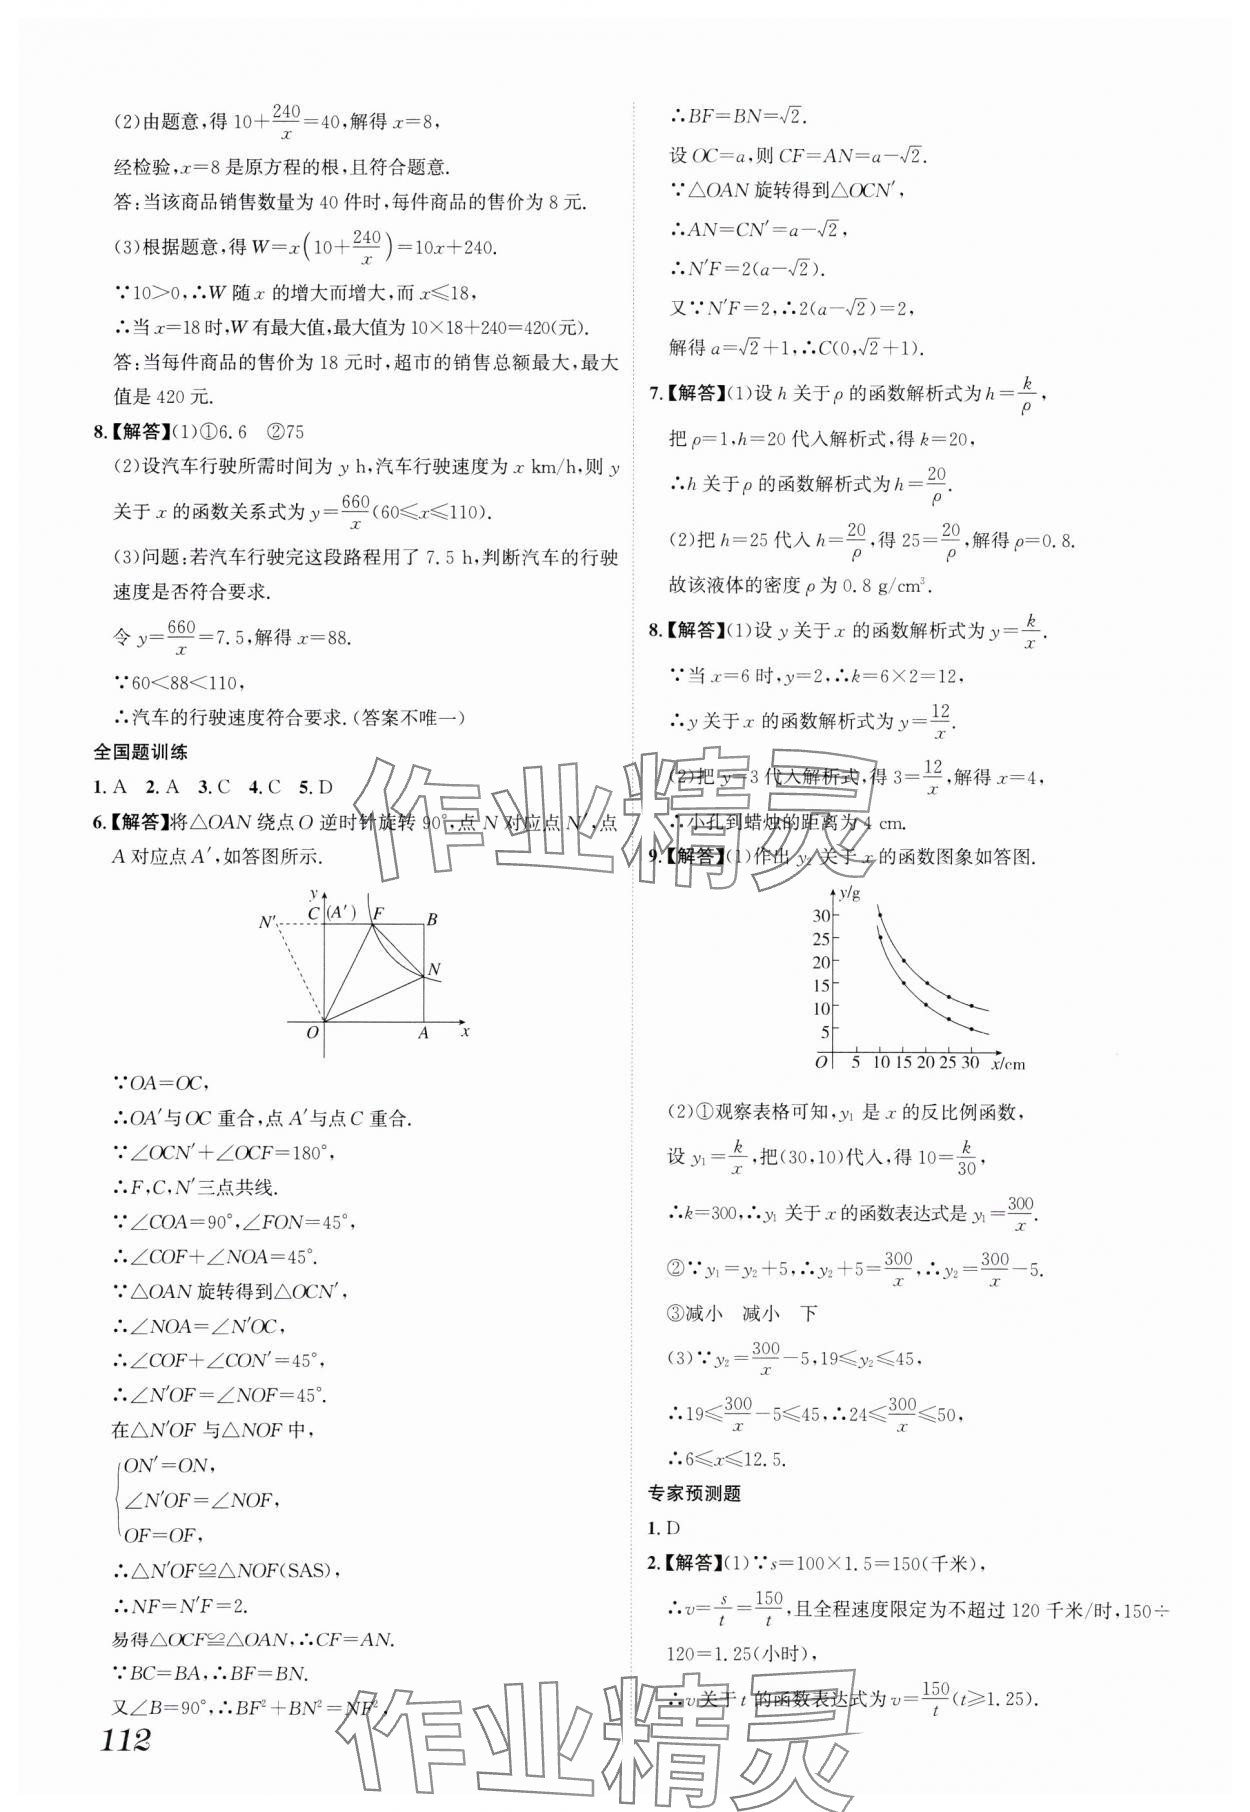 (2)由题意,得 10+240/x=40,解得 x=8,
经检验,x=8 是原方程的根,且符合题意.
答:当该商品销售数量为 40 件时,每件商品的售价为 8 元.
(3)根据题意,得 W=x(10+240/x)=10x+240.
∵10>0,∴W 随 x 的增大而增大,而 x≤18,
∴当 x=18 时,W 有最大值,最大值为 10×18+240=420(元).
答:当每件商品的售价为 18 元时,超市的销售总额最大,最大
值是 420 元.
8.【解答】(1)①6.6 ②75
(2)设汽车行驶所需时间为 y h,汽车行驶速度为 x km/h,则 y
关于 x 的函数关系式为 y=660/x(60≤x≤110).
(3)问题:若汽车行驶完这段路程用了 7.5 h,判断汽车的行驶
速度是否符合要求.
令 y=660/x=7.5,解得 x=88.
∵60<88<110,
∴汽车的行驶速度符合要求.(答案不唯一)
全国题训练
1. A 2. A 3. C 4. C 5. D
6.【解答】将△OAN 绕点 O 逆时针旋转 90°,点 N 对应点 N′,点
A 对应点 A′,如答图所示.
y
N′ C (A′) F B
N
O A x
∵OA=OC,
∴OA′与 OC 重合,点 A′与点 C 重合.
∵∠OCN′+∠OCF=180°,
∴F,C,N′三点共线.
∵∠COA=90°,∠FON=45°,
∴∠COF+∠NOA=45°.
∵△OAN 旋转得到△OCN′,
∴∠NOA=∠N′OC,
∴∠COF+∠CON′=45°,
∴∠N′OF=∠NOF=45°.
在△N′OF 与△NOF 中,
ON′=ON,
∠N′OF=∠NOF,
OF=OF,
∴△N′OF≌△NOF(SAS),
∴NF=N′F=2.
易得△OCF≌△OAN,∴CF=AN.
∵BC=BA,∴BF=BN.
又∠B=90°,∴BF²+BN²=NF²,
112
∴BF=BN=√2.
设 OC=a,则 CF=AN=a-√2.
∵△OAN 旋转得到△OCN′,
∴AN=CN′=a-√2,
∴N′F=2(a-√2).
又∵N′F=2,∴2(a-√2)=2,
解得 a=√2+1,∴C(0,√2+1).
7.【解答】(1)设 h 关于 ρ 的函数解析式为 h=k/ρ,
把 ρ=1,h=20 代入解析式,得 k=20,
∴h 关于 ρ 的函数解析式为 h=20/ρ.
(2)把 h=25 代入 h=20/ρ,得 25=20/ρ,解得 ρ=0.8.
故该液体的密度 ρ 为 0.8 g/cm³.
8.【解答】(1)设 y 关于 x 的函数解析式为 y=k/x.
∵当 x=6 时,y=2,∴k=6×2=12,
∴y 关于 x 的函数解析式为 y=12/x.
(2)把 y=3 代入解析式,得 3=12/x,解得 x=4,
∴小孔到蜡烛的距离为 4 cm.
9.【解答】(1)作出 y₂ 关于 x 的函数图象如答图.
y/g
30
25
20
15
10
5
O 5 10 15 20 25 30 x/cm
(2)①观察表格可知,y₁ 是 x 的反比例函数,
设 y₁=k/x,把(30,10)代入,得 10=k/30,
∴k=300,∴y₁ 关于 x 的函数表达式是 y₁=300/x.
②∵y₁=y₂+5,∴y₂+5=300/x,∴y₂=300/x-5.
③减小 减小 下
(3)∵y₂=300/x-5,19≤y₂≤45,
∴19≤300/x-5≤45,∴24≤300/x≤50,
∴6≤x≤12.5.
专家预测题
1. D
2.【解答】(1)∵s=100×1.5=150(千米),
∴v=s/t=150/t,且全程速度限定为不超过 120 千米/时,150÷
120=1.25(小时),
∴v 关于 t 的函数表达式为 v=150/t(t≥1.25).
作业精灵
作业精灵